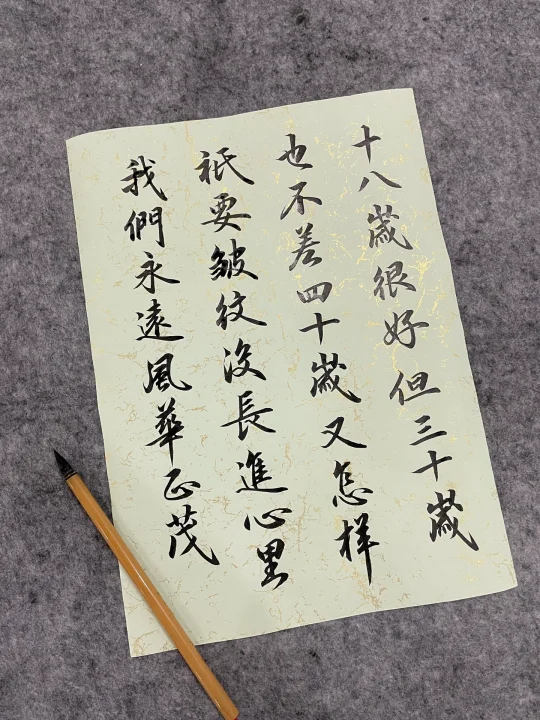 十八歲很好但三十歲
也不差四十歲又怎样
祇要皱紋没長進心里
我們永遠風華正茂